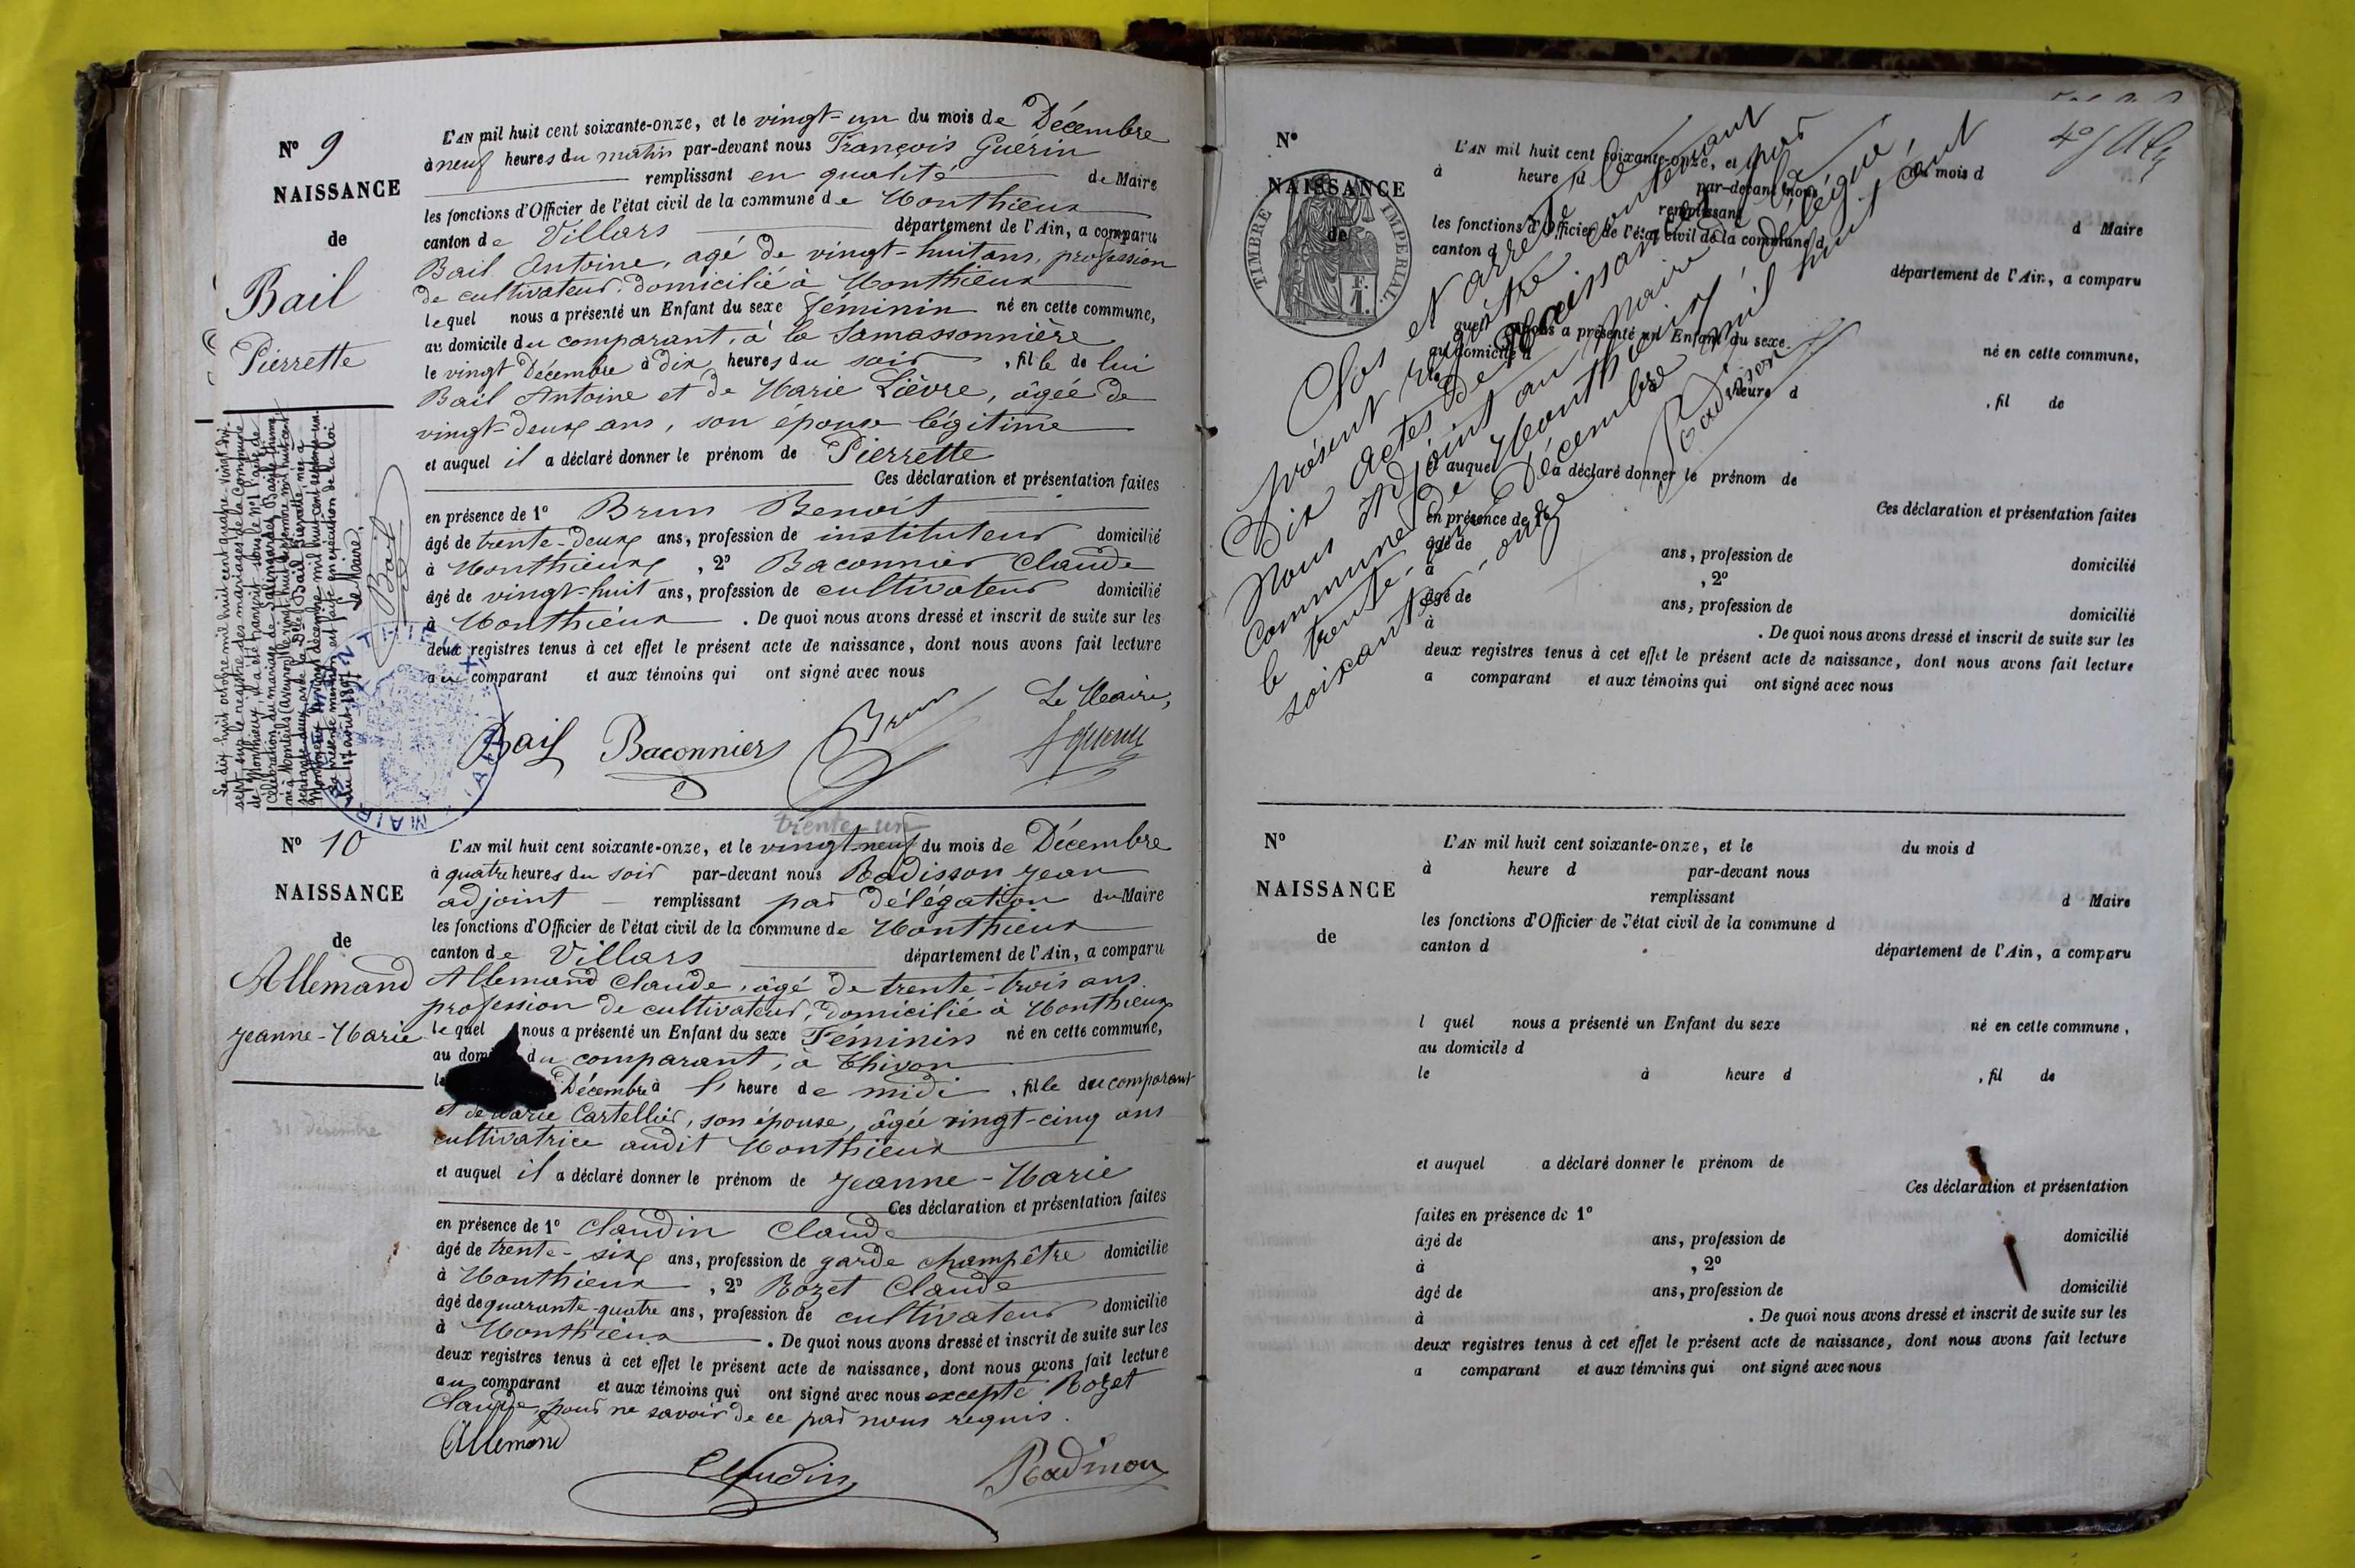 N° 9
NAISSANCE
de
Bail
Pierrette
L'AN mil huit cent soixante-onze, et le vingt-un du mois de Décembre
à neuf heures du matin par-devant nous François Guérin
remplissant en qualité de Maire
les fonctions d'Officier de l'état civil de la commune de Monthieux
canton de Villars département de l'Ain, a comparu
Bail Antoine, agé de vingt-huit ans, profession
de cultivateur, domicilié à Monthieux
lequel nous a présenté un Enfant du sexe féminin né en cette commune,
au domicile du comparant, à la Samassonnière
le vingt Décembre à dix heures du soir, fille de lui
Bail Antoine et de Marie Lièvre, âgée de
vingt-deux ans, son épouse légitime
et auquel il a déclaré donner le prénom de Pierrette
Ces déclaration et présentation faites
en présence de 1° Brun Benoit
âgé de trente-deux ans, profession de instituteur domicilié
à Monthieux, 2° Baconnier Claude
âgé de vingt-huit ans, profession de cultivateur domicilié
à Monthieux. De quoi nous avons dressé et inscrit de suite sur les
deux registres tenus à cet effet le présent acte de naissance, dont nous avons fait lecture
au comparant et aux témoins qui ont signé avec nous
Le Maire,
Bail Baconnier Brun
Le dix huit octobre mil huit cent quatre vingt dix-
sept, sur le registre des mariages de la Commune
de Monthieux, il a été transcrit sous le n° 1 l'acte de
célébration du mariage de
né à (Aveyron) le vingt huit mil huit cent
septante deux avec la Dlle Bail Pierrette, née à
Monthieux le vingt décembre mil huit cent septante un.
La présente mention est faite en exécution de la loi
du 17 août 1897
Le Maire,
Bail
MAIRIE
N° 10
NAISSANCE
de
Allemand
Jeanne-Marie
31 Décembre
trente-un
L'AN mil huit cent soixante-onze, et le vingt-neuf du mois de Décembre
à quatre heures du soir par-devant nous Radisson Jean
adjoint remplissant par délégation du Maire
les fonctions d'Officier de l'état civil de la commune de Monthieux
canton de Villars département de l'Ain, a comparu
Allemand Claude, âgé de trente-trois ans.
profession de cultivateur, domicilié à Monthieux
lequel nous a présenté un Enfant du sexe Féminin né en cette commune,
au domi du comparant, à Thivon
le Décembre à l' heure de midi, fille du comparant
et de Marie Cartellier, son épouse, âgée vingt-cinq ans
cultivatrice audit Monthieux
et auquel il a déclaré donner le prénom de Jeanne-Marie
Ces déclaration et présentation faites
en présence de 1° Claudin Claude
âgé de trente-six ans, profession de garde champêtre domicilié
à Monthieux, 2° Rozet Claude
âgé de quarante-quatre ans, profession de cultivateur domicilié
à Monthieux. De quoi nous avons dressé et inscrit de suite sur les
deux registres tenus à cet effet le présent acte de naissance, dont nous avons fait lecture
au comparant et aux témoins qui ont signé avec nous excepté Rozet
Claude, pour ne savoir de ce par nous requis.
Allemand
Claudin Radisson
N°
NAISSANCE
de
TIMBRE IMPERIAL.
F.
1.
L'AN mil huit cent soixante-onze, et le du mois d
à heure d par-devant nous
remplissant d Maire
les fonctions d'Officier de l'état civil de la commune d
canton d département de l'Ain, a comparu
quel nous a présenté un Enfant du sexe né en cette commune,
au domicile d
heure d, fil de
et auquel a déclaré donner le prénom de
Ces déclaration et présentation faites
en présence de 1°
âgé de ans, profession de domicilié
à, 2°
âgé de ans, profession de domicilié
à. De quoi nous avons dressé et inscrit de suite sur les
deux registres tenus à cet effet le présent acte de naissance, dont nous avons fait lecture
a comparant et aux témoins qui ont signé avec nous
Clos et arrêté le
présent registre contenant
Dix actes de Naissance par
Nous Adjoint au Maire de la
commune de Monthieux, délégué,
le trente-un Décembre mil huit cent
soixante-onze
Radisson
N°
NAISSANCE
de
L'AN mil huit cent soixante-onze, et le du mois d
à heure d par-devant nous
remplissant d Maire
les fonctions d'Officier de l'état civil de la commune d
canton d département de l'Ain, a comparu
l quel nous a présenté un Enfant du sexe né en cette commune,
au domicile d
le à heure d, fil de
et auquel a déclaré donner le prénom de
Ces déclaration et présentation
faites en présence de 1°
âgé de ans, profession de domicilié
à, 2°
âgé de ans, profession de domicilié
à. De quoi nous avons dressé et inscrit de suite sur les
deux registres tenus à cet effet le présent acte de naissance, dont nous avons fait lecture
a comparant et aux témoins qui ont signé avec nous